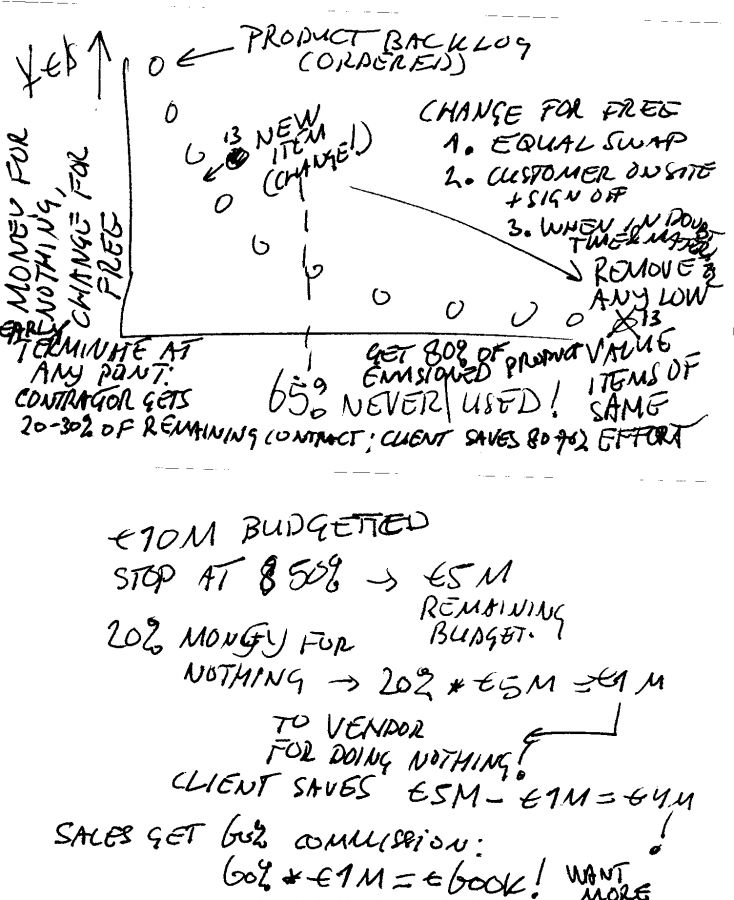 ¥€$
PRODUCT BACKLOG
(ORDERED)
MONEY FOR
NOTHING,
CHANGE FOR
FREE
13 NEW
ITEM
(CHANGE!)
CHANGE FOR FREE
1. EQUAL SWAP
2. CUSTOMER ONSITE
+ SIGN OFF
3. WHEN IN DOUBT
REMOVE
ANY LOW
13
VALUE
ITEMS OF
SAME
EFFORT
EARLY
TERMINATE AT
ANY POINT:
CONTRACTOR GETS
20-30% OF REMAINING CONTRACT; CLIENT SAVES
GET 80% OF
ENVISIONED PRODUCT
65% NEVER USED!
€10M BUDGETTED
STOP AT 50% → €5M
REMAINING
BUDGET.
20% MONEY FOR
NOTHING → 20% * €5M = €1M
TO VENDOR
FOR DOING NOTHING!
CLIENT SAVES €5M - €1M = €4M
!
SALES GET 60% COMMISSION:
60% * €1M = €600K! WANT
MORE